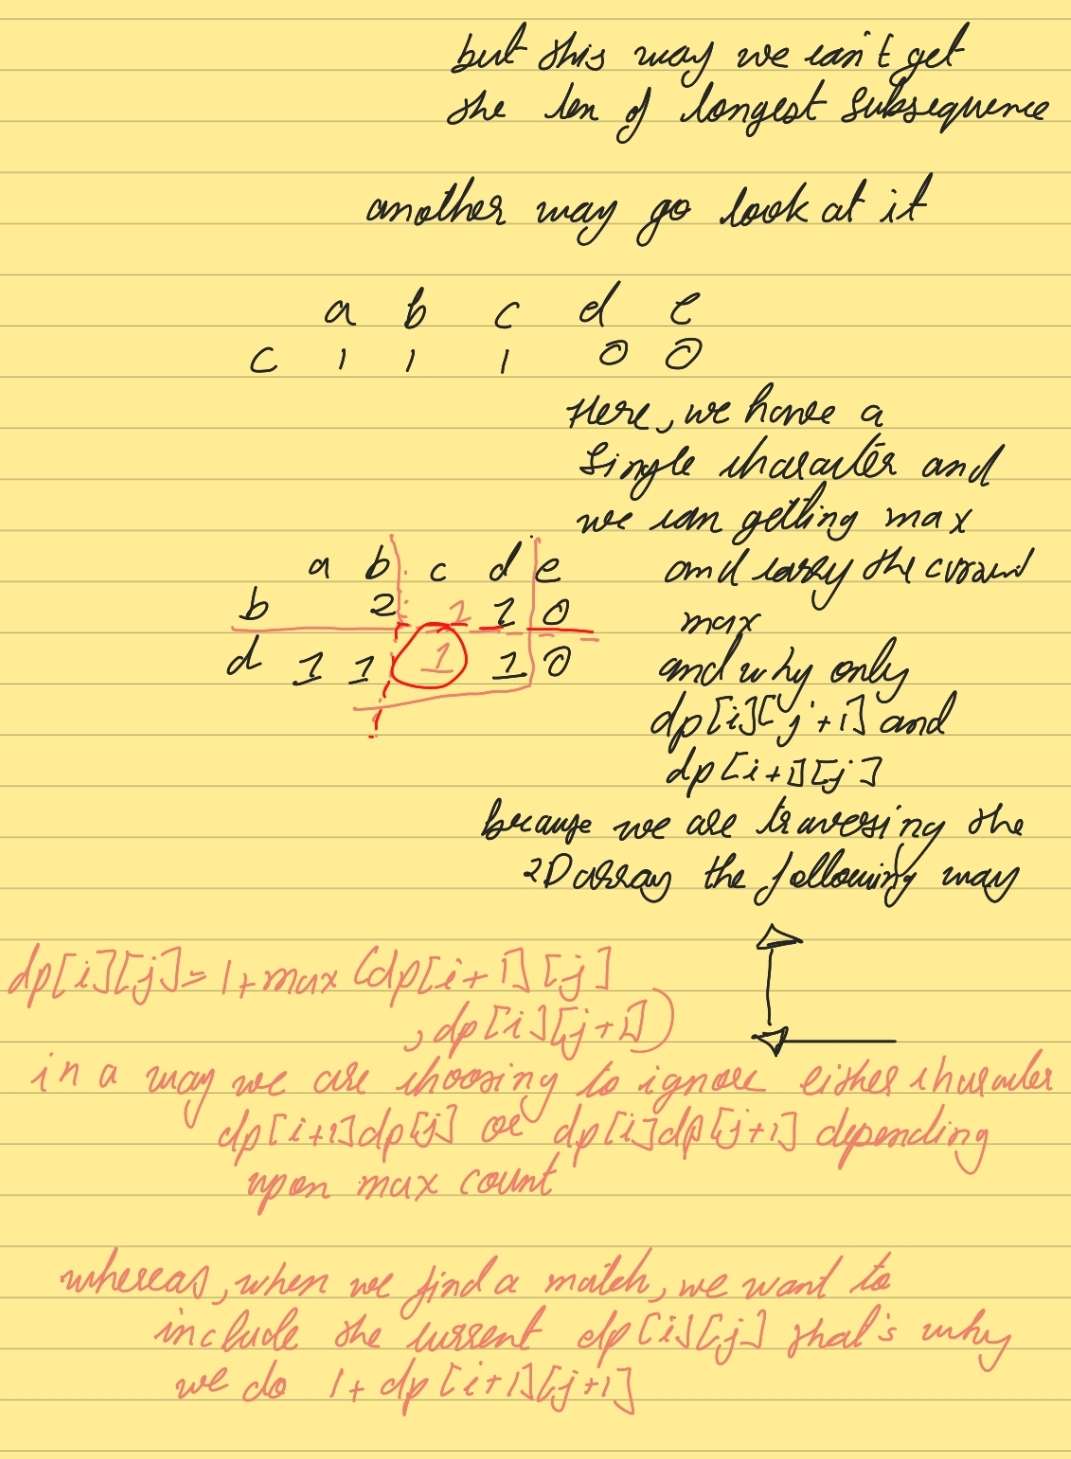 but this way we can't get
the len of longest subsequence
another way go look at it
a b c d e
c 1 1 1 0 0
Here, we have a
single character and
we can getting max
a b c d e
and carry the current
b 2 1 1 0
max
d 1 1 1 1 0
and why only
dp[i][j+1] and
dp[i+1][j]
because we are traversing the
2D array the following way
dp[i][j]=1+max(dp[i+1][j]
,dp[i][j+1])
in a way we are choosing to ignore either character
dp[i+1]dp[j] or dp[i]dp[j+1] depending
upon max count
whereas, when we find a match, we want to
include the current dp[i][j] that's why
we do 1+dp[i+1][j+1]